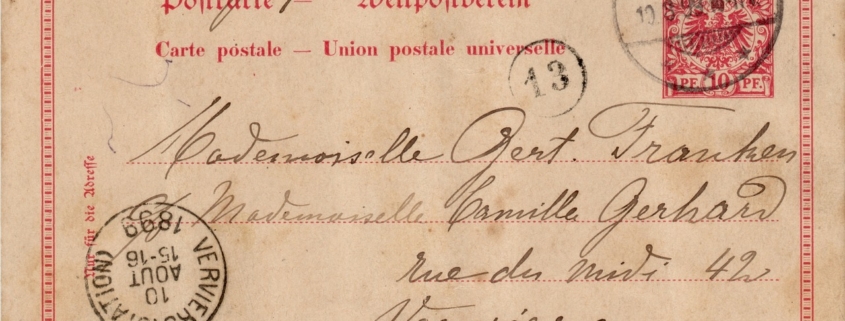 Postkarte — Weltpostverein
Carte postale — Union postale universelle
13
10 PF. 10 PF.
Nur für die Adresse
Mademoiselle Gert. Franken
c/o Mademoiselle Camille Gerhard
rue du midi 42
Verviers
VERVIERS (STATION)
10
AOUT
15-16
1899